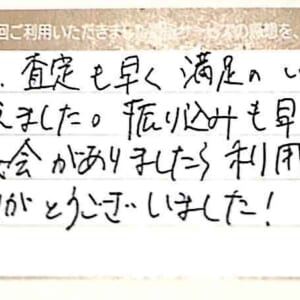 回ご利用いただきました サービスの感想を、
、査定も早く 満足の い
えました。振り込みも早
会がありましたら 利用
がとうございました!